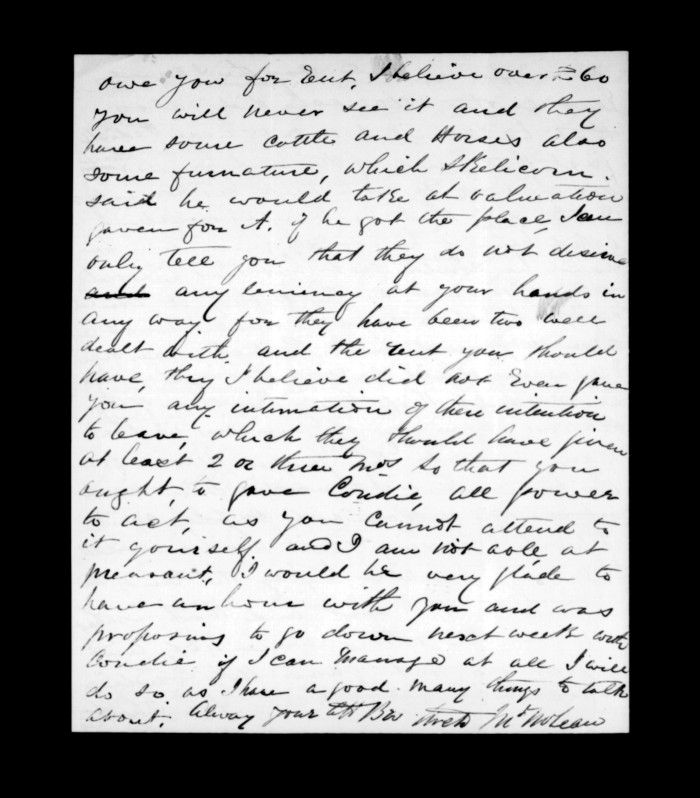 owe you for Rent, I believe over £60
you will never see it and they
have some cattle and Horses also
some furnature, which Skelicorn.
said he would take at valuation
gaven for it. if he got the place, I can
only tell you that they do not desire
and any leniency at your hands in
any way for they have been two well
dealt with, and the rent you should
have, they I believe did not Even gave
you any intimation of there intention
to leave, which they should have given
at least 2 or three mos so that you
ought, to gave Condie, all power
to act, as you Cannot attend to
it yourself, and I am not able, at
preasant, I would be very glade to
have an hour with you and was
proposing to go down next week with
Condie if I can manage at all I will
do so as I have a good many things to talk
about. Alway your Bro McLean